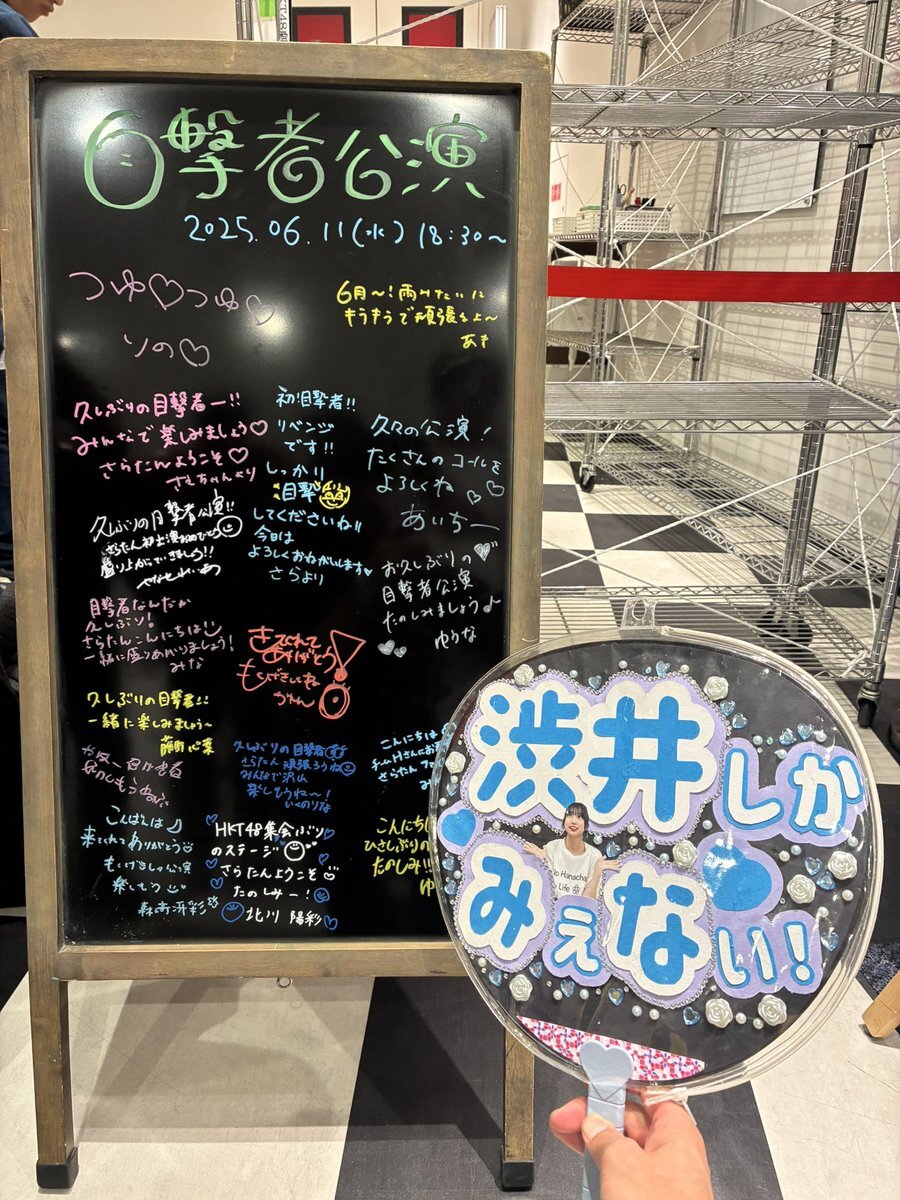 目撃者公演
2025.06.11(水) 18:30~
つゆ♡つゆ♡
りの♡
6月~!雨みたいに
キラキラで頑張るよ~
あき
久しぶりの目撃者ー!!
みんなで楽しみましょう♡
さらたんようこそ♡
さえちゃんより
初!目撃者!!
リベンジ
です!!
しっかり
目撃
してくださいね!!
今日は
よろしくおねがいします
さらより
久々の公演!
たくさんのコールを
よろしくね
あいちー
久しぶりの目撃者公演!!
さらたん初出演おめでとう
盛り上がっていきましょう!!
お久しぶりの
目撃者公演
たのしみましょう♪
ゆうな
目撃者なんだか
久しぶり!
さらたんこんにちは
一緒に盛りあがりましょう!
みな
きてくれて
ありがとう
もくげきしてね
久しぶりの目撃者!!
一緒に楽しみましょう~
藤野心葉
久しぶりの目撃者
さらたん頑張ろうね
みんなで沢山
楽しもうね~!
いくのりな
こんにちは
チームHさんに
さらたん
こんばんは
来てくれてありがとう
もくげきしゃ公演
楽しもう
HKT48集会ぶり
のステージ
さらたんようこそ
たのしみー!
北川 陽彩
こんにちは
ひさしぶりの
たのしみ!!
ゆ
渋井しか
みえない!
Jo Hanacha
Life